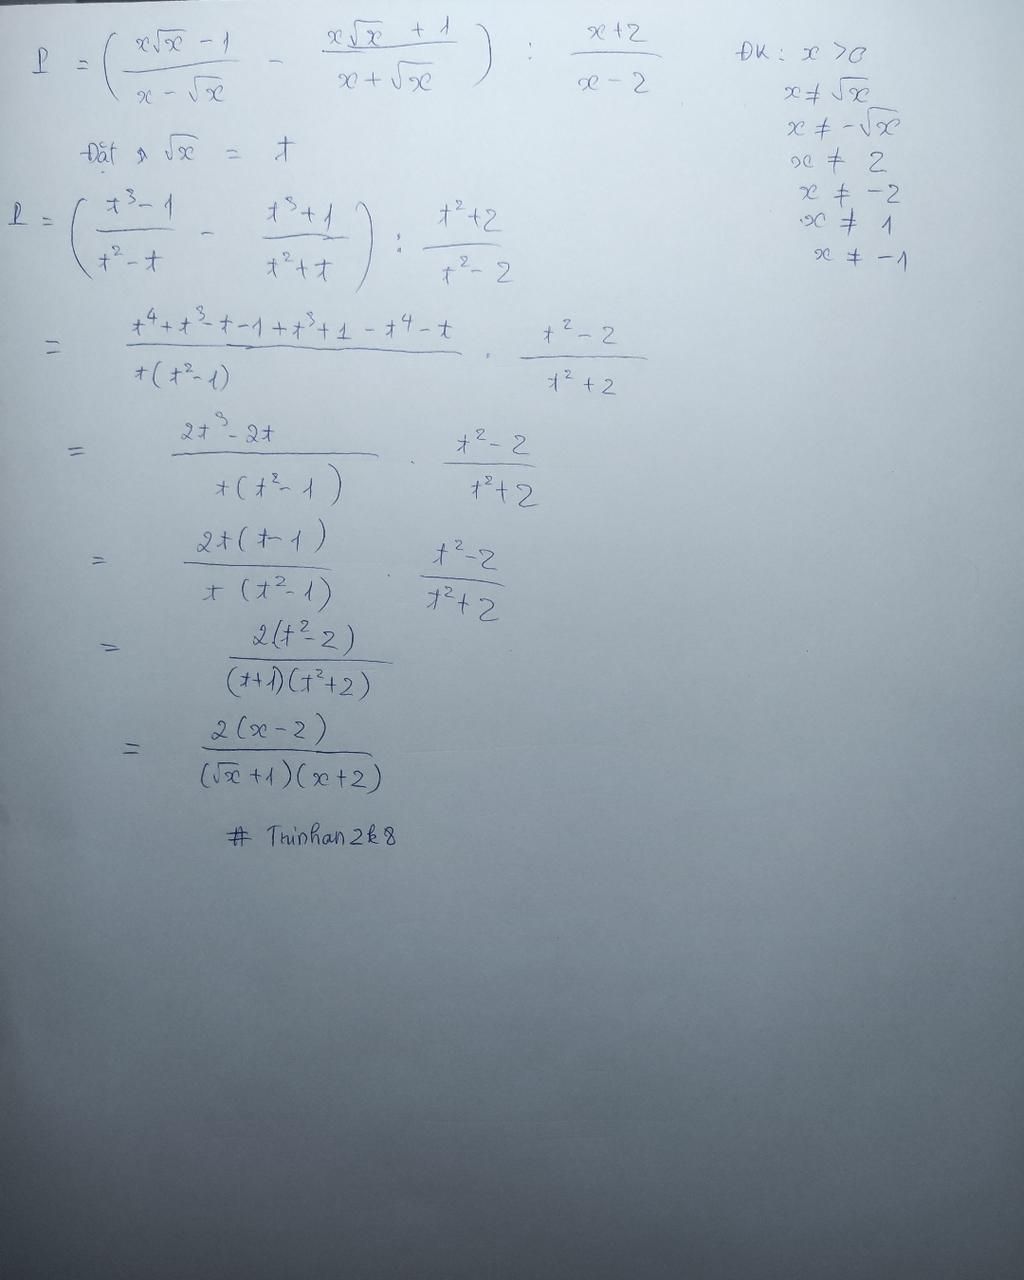 P = ( (x√x − 1)/(x − √x) − (x√x + 1)/(x + √x) ) : (x+2)/(x − 2)
ĐK : x > 0
x ≠ √x
x ≠ −√x
x ≠ 2
x ≠ −2
x ≠ 1
x ≠ −1
Đặt √x = t
P = ( (t³ − 1)/(t² − t) − (t³ + 1)/(t² + t) ) : (t² + 2)/(t² − 2)
= (t⁴ + t³ − t − 1 + t³ + 1 − t⁴ − t)/(t(t² − 1)) . (t² − 2)/(t² + 2)
= (2t³ − 2t)/(t(t² − 1)) . (t² − 2)/(t² + 2)
= (2t(t − 1))/(t(t² − 1)) . (t² − 2)/(t² + 2)
= (2(t² − 2))/((t + 1)(t² + 2))
= (2(x − 2))/((√x + 1)(x + 2))
# Thinhan2k8